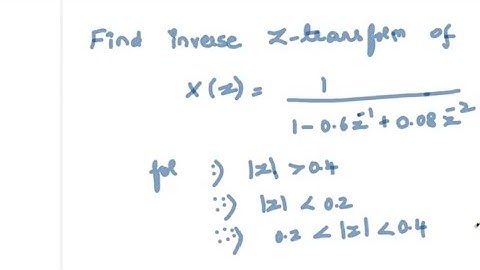 Find inverse Z-transform of
X(z) = 1 / (1 - 0.6z⁻¹ + 0.08z⁻²)
for i) |z| > 0.4
ii) |z| < 0.2
iii) 0.2 < |z| < 0.4